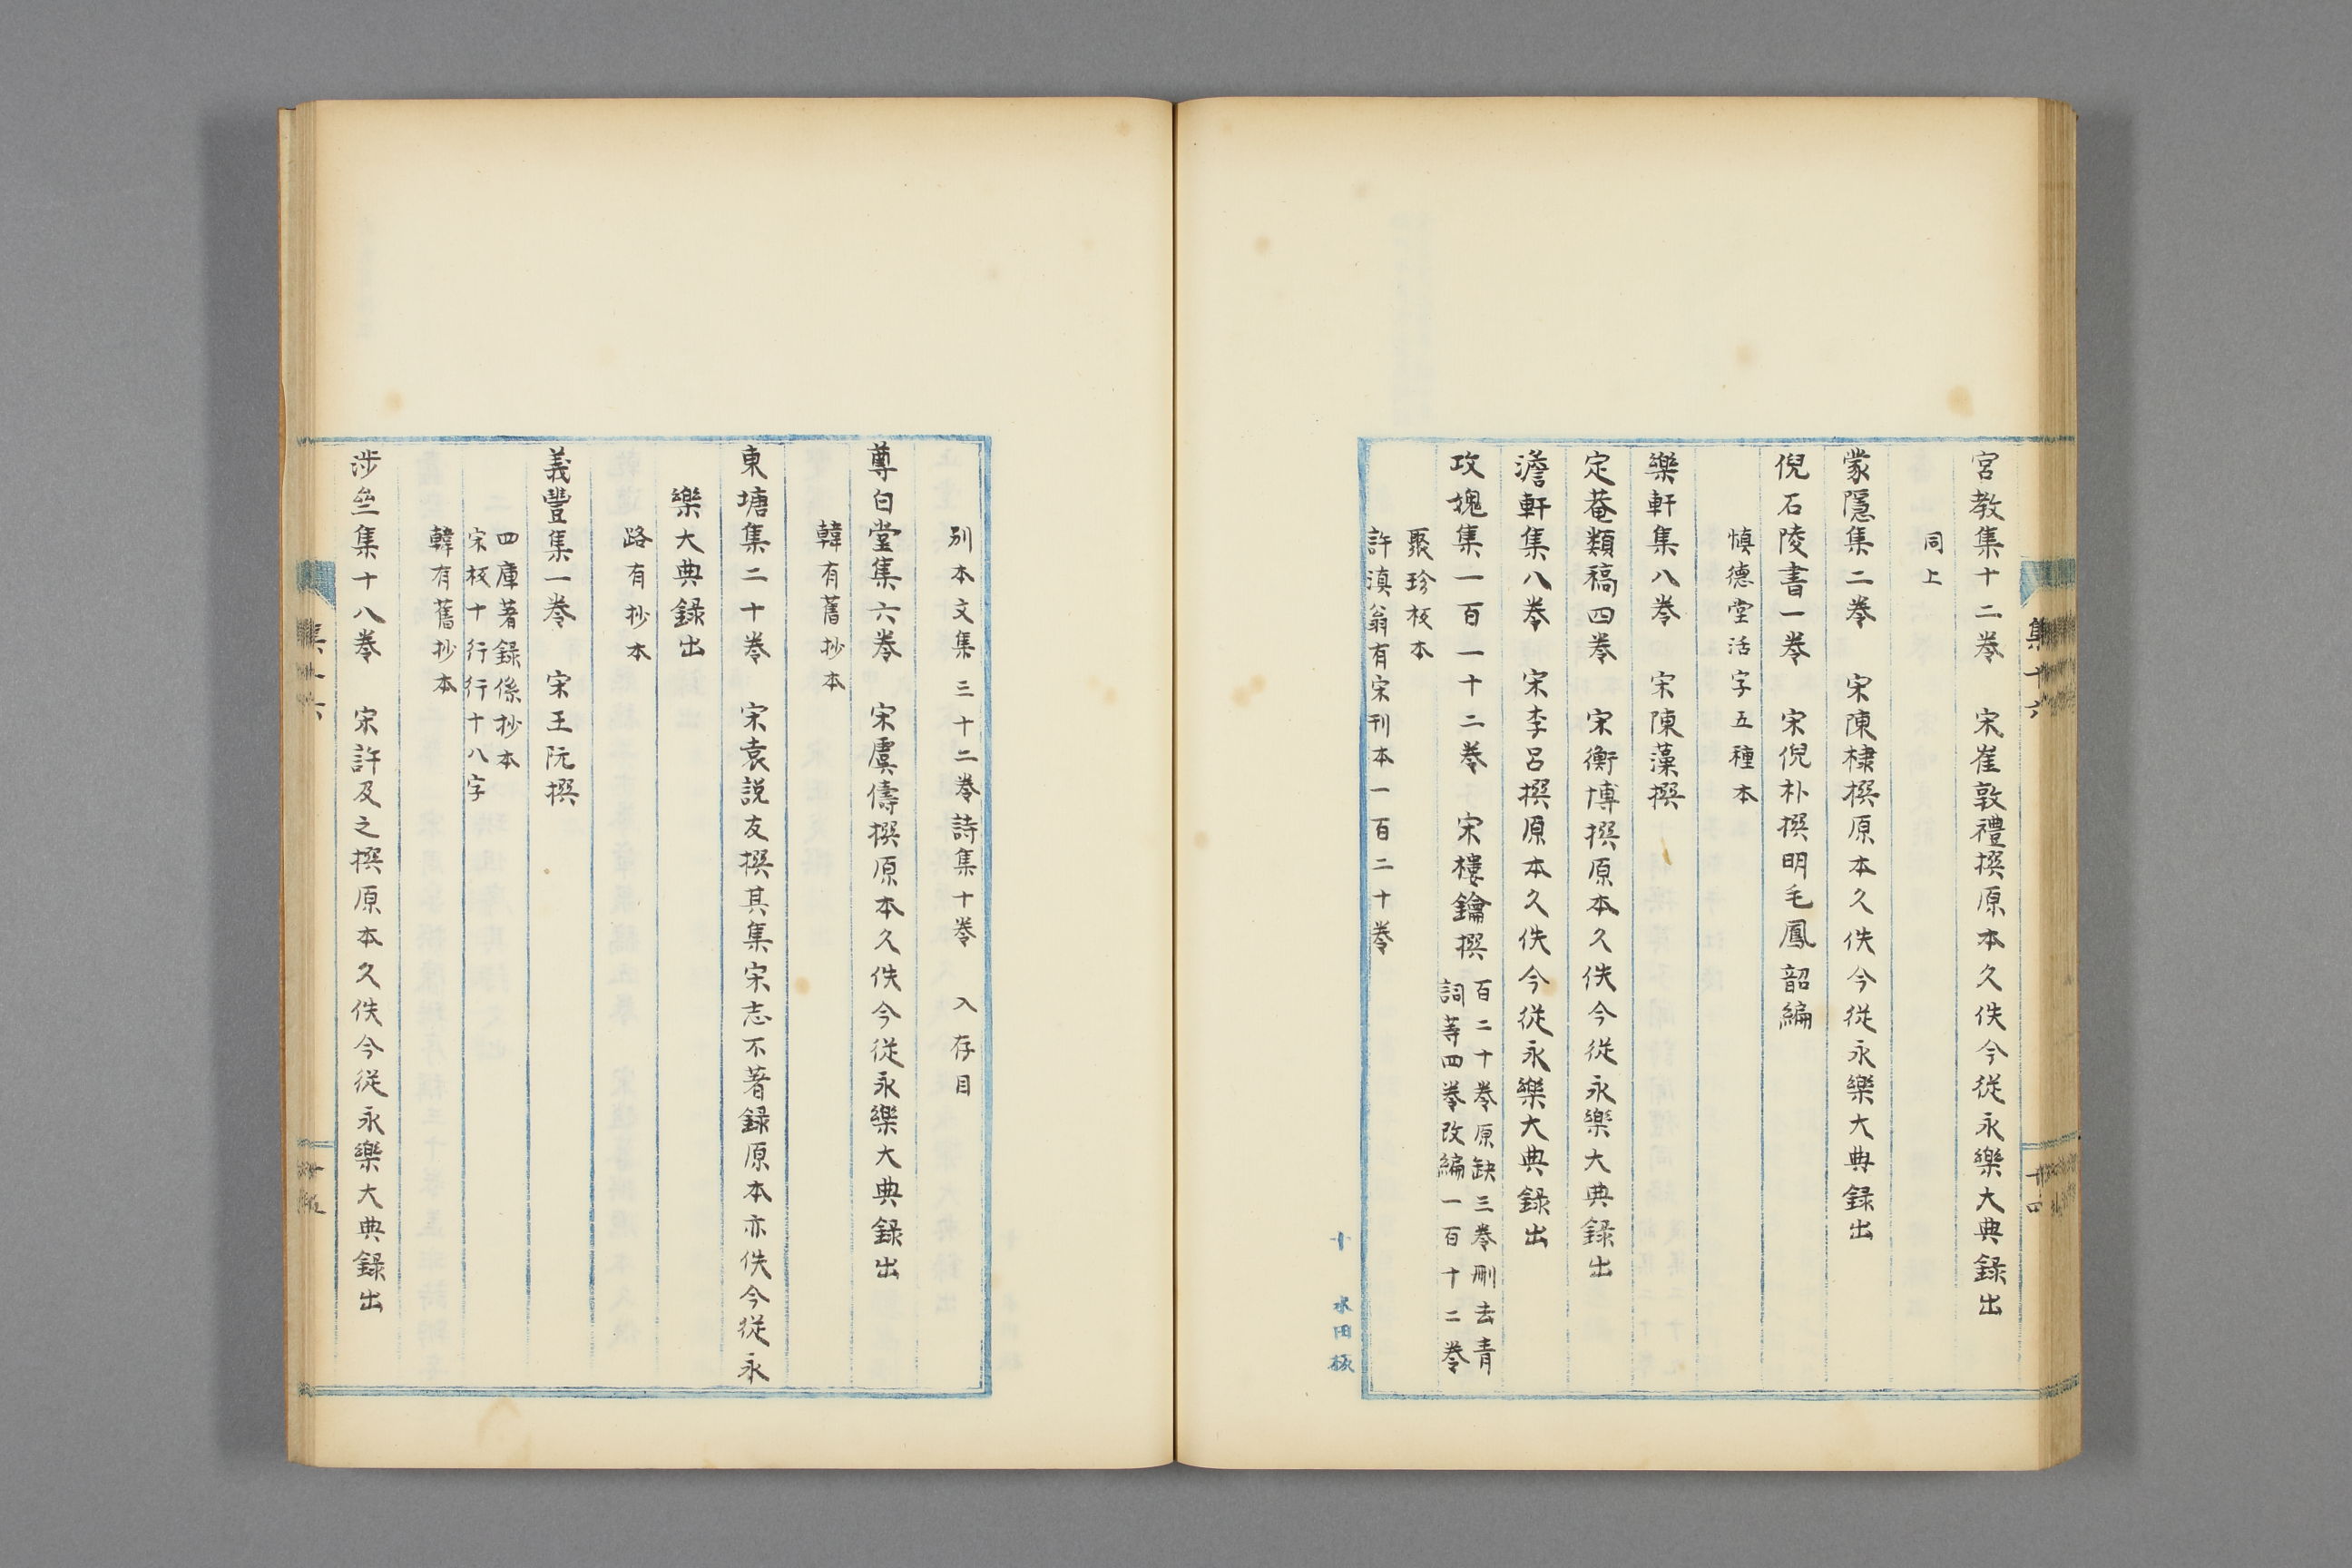 宮教集十二卷　宋崔敦禮撰原本久佚今從永樂大典録出
同上
蒙隱集二卷　宋陳棣撰原本久佚今從永樂大典録出
倪石陵書一卷　宋倪朴撰明毛鳳韶編
慎德堂活字五種本
樂軒集八卷　宋陳藻撰
定菴類稿四卷　宋衛博撰原本久佚今從永樂大典録出
澹軒集八卷　宋李呂撰原本久佚今從永樂大典録出
攻媿集一百一十二卷　宋樓鑰撰
百二十卷原缺三卷刪去青
詞等四卷改編一百十二卷
聚珍板本
許滇翁有宋刊本一百二十卷
集十六
十四
十
水田板
別本文集三十二卷詩集十卷　入存目
尊白堂集六卷　宋虞儔撰原本久佚今從永樂大典録出
韓有舊抄本
東塘集二十卷　宋袁説友撰其集宋志不著録原本亦佚今從永
樂大典録出
路有抄本
義豐集一卷　宋王阮撰
四庫著録係抄本
宋板十行行十八字
韓有舊抄本
涉齋集十八卷　宋許及之撰原本久佚今從永樂大典録出